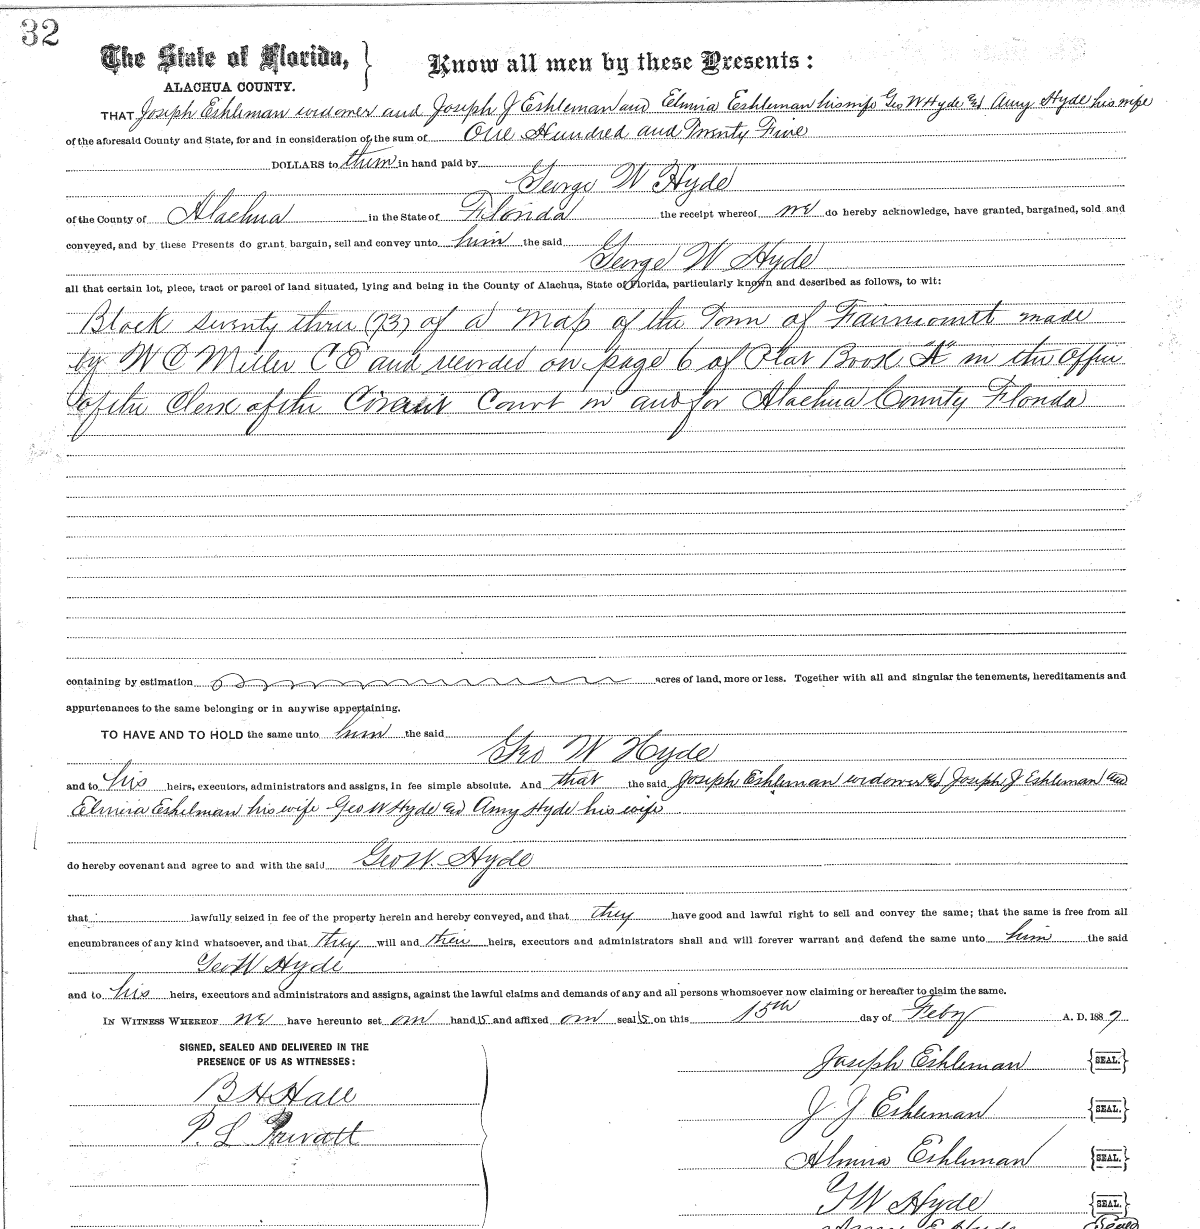 32
The State of Florida,
ALACHUA COUNTY.
Know all men by these Presents:
THAT Joseph Eshleman widower and Joseph J Eshleman and Elmira Eshleman his wife Geo W Hyde & Amy Hyde his wife
of the aforesaid County and State, for and in consideration of the sum of One Hundred and Twenty Five
DOLLARS to them in hand paid by
George W Hyde
of the County of Alachua in the State of Florida the receipt whereof we do hereby acknowledge, have granted, bargained, sold and
conveyed, and by these Presents do grant bargain, sell and convey unto him the said
George W Hyde
all that certain lot, piece, tract or parcel of land situated, lying and being in the County of Alachua, State of Florida, particularly known and described as follows, to wit:
Block seventy three (73) of a Map of the Town of Fairmount made
by W C Miller C E and recorded on page 6 of Plat Book "A" in the Office
of the Clerk of the Circuit Court in and for Alachua County Florida
containing by estimation acres of land, more or less. Together with all and singular the tenements, hereditaments and
appurtenances to the same belonging or in anywise appertaining.
TO HAVE AND TO HOLD the same unto him the said
Geo W Hyde
and to his heirs, executors, administrators and assigns, in fee simple absolute. And that the said Joseph Eshleman widower & Joseph J Eshleman and
Elmira Eshelman his wife Geo W Hyde & Amy Hyde his wife
do hereby covenant and agree to and with the said Geo W. Hyde
that lawfully seized in fee of the property herein and hereby conveyed, and that they have good and lawful right to sell and convey the same; that the same is free from all
encumbrances of any kind whatsoever, and that they will and their heirs, executors and administrators shall and will forever warrant and defend the same unto him the said
Geo W Hyde
and to his heirs, executors and administrators and assigns, against the lawful claims and demands of any and all persons whomsoever now claiming or hereafter to claim the same.
IN WITNESS WHEREOF we have hereunto set our hands and affixed our seals on this 15th day of Feby A. D. 1887
SIGNED, SEALED AND DELIVERED IN THE
PRESENCE OF US AS WITNESSES:
B H Hall
P. L. Privatt
Joseph Eshleman {SEAL.}
J J Eshleman {SEAL.}
Almira Eshleman {SEAL.}
G W Hyde {SEAL.}